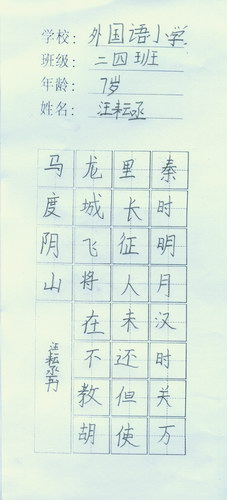 学校：外国语小学
班级：二四班
年龄：7岁
姓名：汪耘丞
秦时明月汉时关万
里长征人未还但使
龙城飞将在不教胡
马度阴山
汪耘丞书